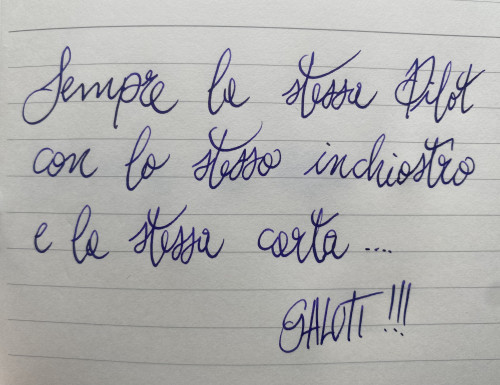 Sempre la stessa Pilot
con lo stesso inchiostro
e la stessa carta ....
SALUTI !!!